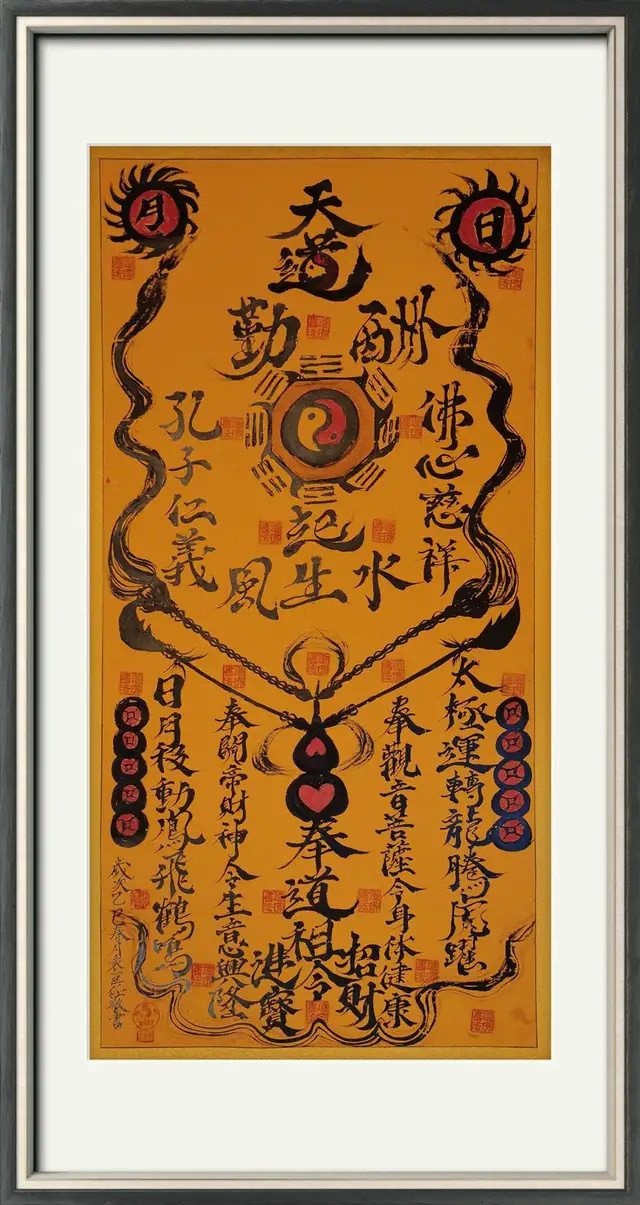 日
月
天道
酬勤
佛心慈祥
孔子仁義
風生水起
太極運轉龍騰虎躍
奉觀音菩薩令身体健康
奉道祖令
招財
進寶
奉關帝財神令生意興隆
日月移動鳳飛鶴鳴
歲次乙巳
書